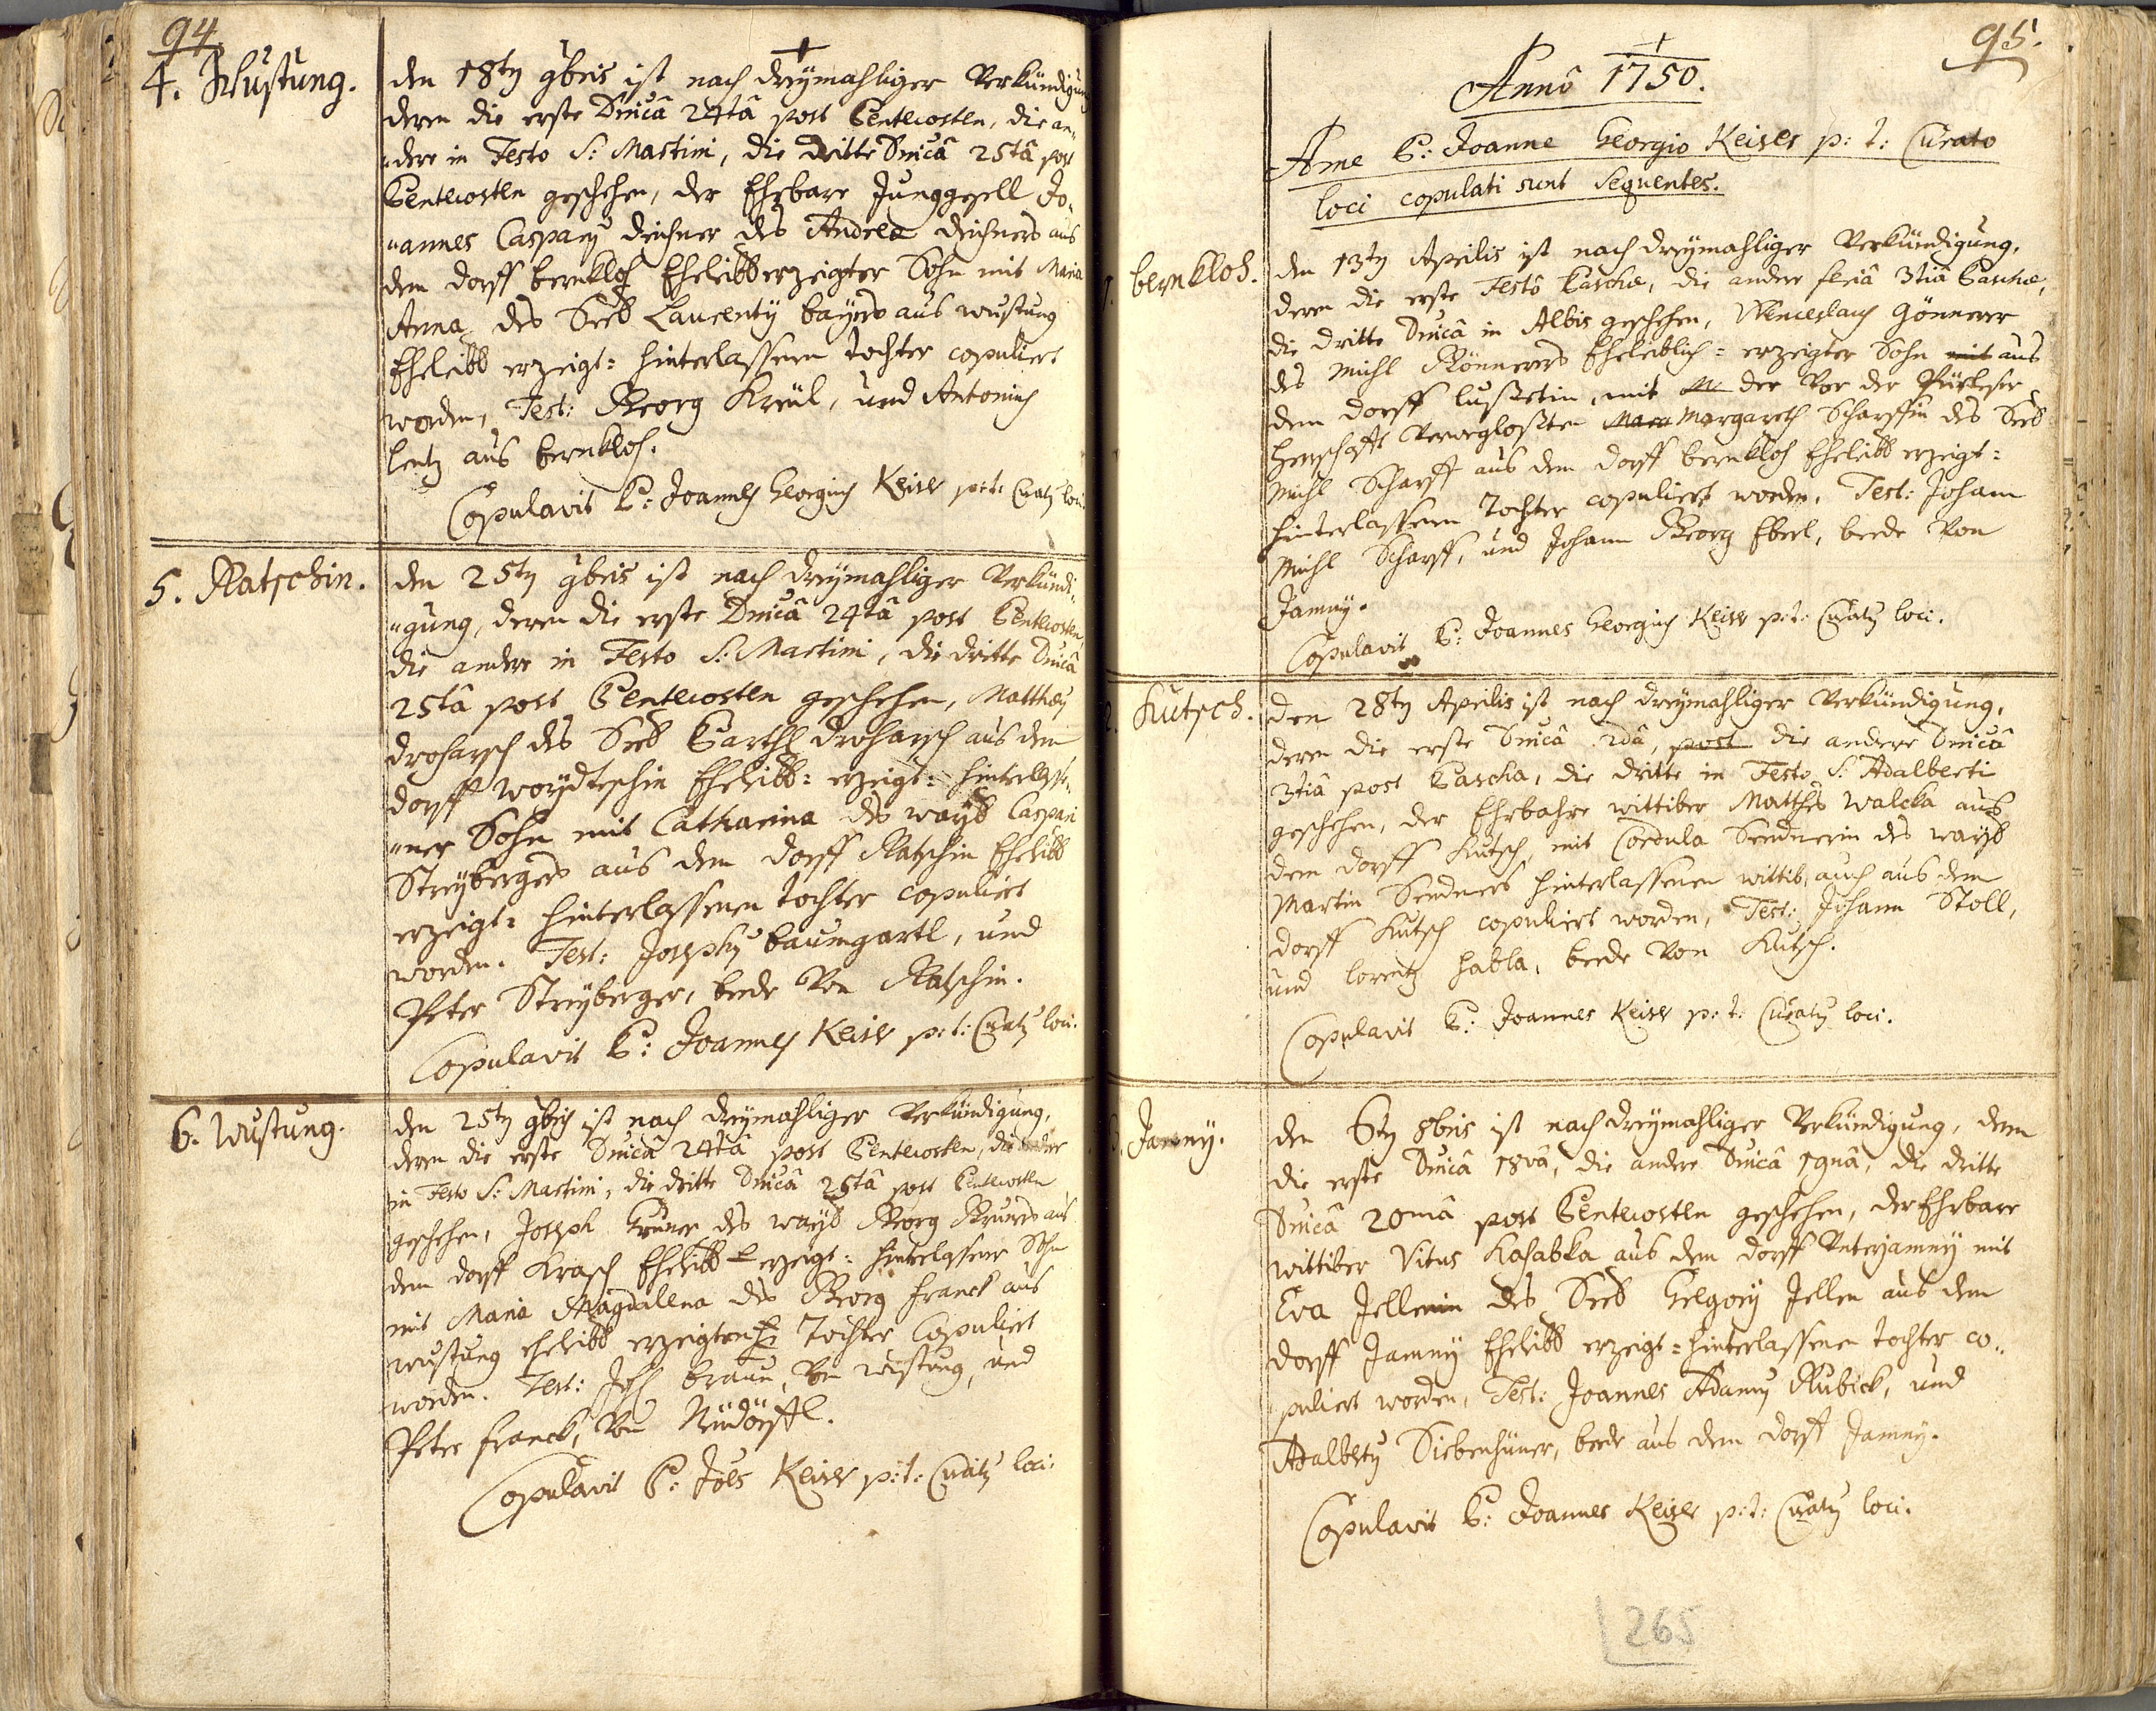 94.
4. Wustung.
den 18tn 9bris ist nach dreÿmahliger Verkündigung
deren die erste Dnicâ 24tâ post Pentecosten, die an-
dere in Festo S: Martini, die dritte Dnicâ 25tâ post
Pentecosten geschehen, der Ehrbare Junggesell Jo-
annes Caspary deichner des Andreæ deichners aus
dem dorff bernkloh Eheleibb erzeigter Sohn mit Maria
Anna des Seeb Laurentÿ baÿers aus wustung
Eheleibb erzeigt: hinterlassenen tochter copuliert
worden, Test: Georg Kreül, und Antonius
lentz aus bernkloh.
Copulavit P: Joannes Georgius Keiser p: t: Curaty loci
5. Ratschin.
den 25tn 9bris ist nach dreÿmahliger Verkündi-
gung, deren die erste Dnicâ 24tâ post Pentecosten,
die andere in Festo S: Martini, die dritte Dnicâ
25tâ post Pentecosten geschehen, Matthæy
droharsch des Seeb Barthl droharsch aus dem
dorff woÿdtschin Eheleibb: erzeigt: hinterlasse-
ner Sohn mit Catharina des waÿl Caspari
Streÿbergers aus dem dorff Ratschin Eheleibb
erzeigt: hinterlassenen tochter copuliert
worden. Test: Josephy baumgartl, und
Peter Streÿberger, beede von Ratschin.
Copulavit P: Joannes Keiser p: t: Curaty loci.
6. Wustung.
den 25tn 9bris ist nach dreÿmahliger Verkündigung,
deren die erste Dnicâ 24tâ post Pentecosten, die andere
in Festo S: Martini, die dritte Dnicâ 25tâ post Pentecosten
geschehen, Joseph Gruner des waÿl Georg Gruners aus
dem dorff Krasch Eheleibb erzeigt: hinterlassene Sohn
mit Maria Magdalena des Georg franck aus
wustung eheleibb erzeigten Tochter Copuliert
worden. Test: Joh braun, von wustung, und
Peter franck, von Neüdörffl.
Copulavit P: Joës Keiser p: t: Curaty loci.
95.
Annô 1750.
A me P: Joanne Georgio Keiser p: t: Curato
loci copulati sunt Sequentes.
1. bernkloh.
den 13tn Aprilis ist nach dreÿmahliger Verkündigung,
deren die erste Festô Paschæ, die andere feriâ 3tiâ Paschæ,
die dritte Dnicâ in Albis geschehen, Wenceslaus Gönnerer
des Michl Gönnerers Eheleiblich: erzeigter Sohn mit aus
dem dorff lußetin, mit M der von der
herrschafft Mar Margareth Scharffin des Seeb
Michl Scharff aus dem dorff bernkloh Eheleibb erzeigt:
hinterlassenen Tochter copuliert worden. Test: Johann
Michl Scharff, und Johann Georg Eberl, beede von
Jamny.
Copulavit P: Joannes Georgius Keiser p: t: Curaty loci.
2. Kutsch.
den 28tn Aprilis ist nach dreÿmahliger Verkündigung,
deren die erste Dnicâ 2dâ, post die andere Dnicâ
3tiâ post Pascha, die dritte in Festo S: Adalberti
geschehen, der Ehrbahre wittiber Matthes Walcka aus
dem dorff Kutsch, mit Cordula Sendnerin des waÿl
Martin Sendners hinterlassenen wittib, auch aus dem
dorff Kutsch copuliert worden, Test: Johann Stoll,
und lorentz habla, beede von Kutsch.
Copulavit P: Joannes Keiser p: t: Curaty loci.
3. Jamny.
den 6tn 8bris ist nach dreÿmahliger Verkündigung, deren
die erste Dnicâ 18vâ, die andere Dnicâ 19nâ, die dritte
Dnicâ 20mâ post Pentecosten geschehen, der Ehrbare
wittiber Vitus Kasabka aus dem dorff Unterjamnÿ mit
Eva Jellenin des Seeb Gregorÿ Jellen aus dem
dorff Jamnÿ Eheleibb erzeigt: hinterlassenen tochter co-
puliert worden, Test: Joannes Adamy Kubick, und
Adalberty Siebenhüner, beede aus dem dorff Jamny.
Copulavit P: Joannes Keiser p: t: Curaty loci.
265